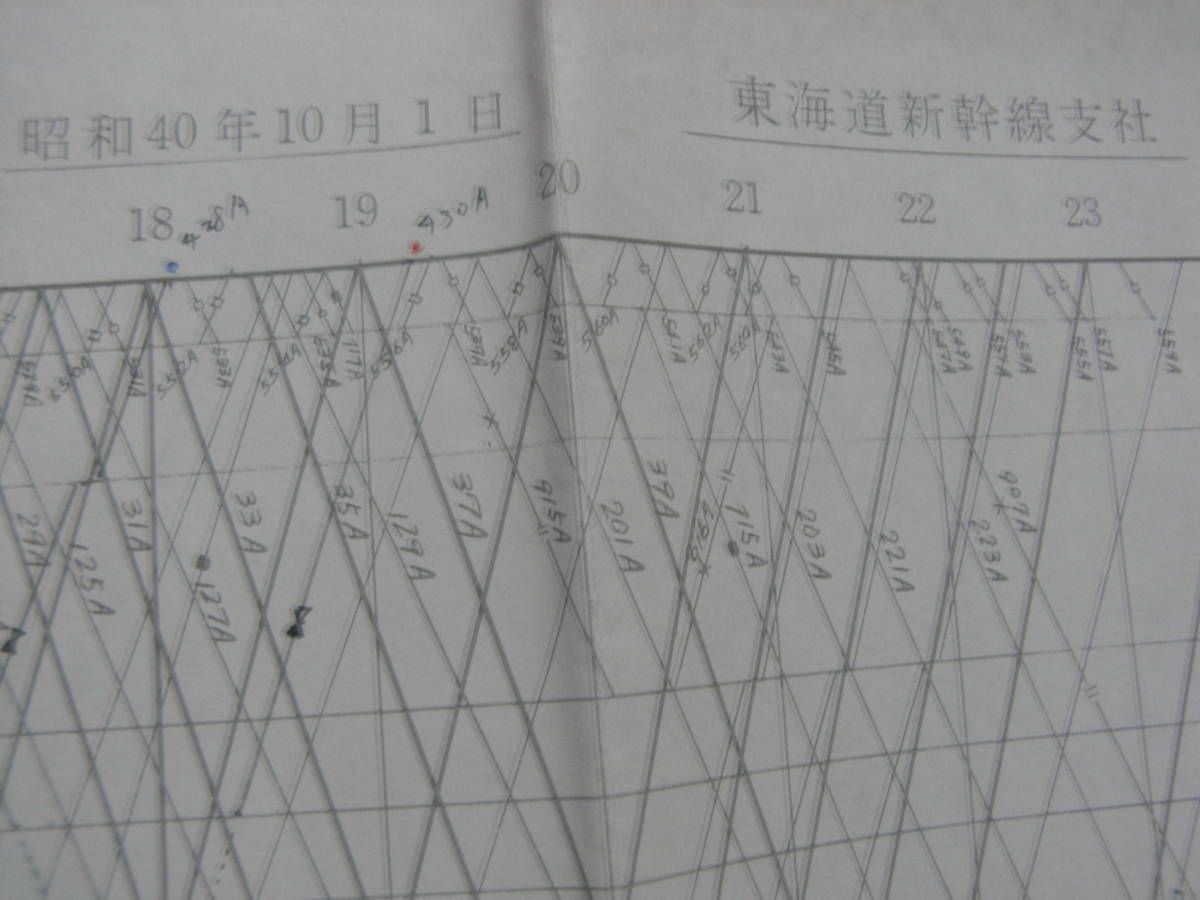 昭和40年10月1日
東海道新幹線支社
18 19 20 21 22 23
428A 430A
549A 550A 531A 552A 533A 554A 535A 117A 556A 537A 558A 539A 560A 541A 562A 543A 545A 547A 549A 551A 553A 555A 557A 559A
29A 125A 31A 127A 33A 35A 129A 37A 915A 201A 39A 715A 203A 221A 223A 909A